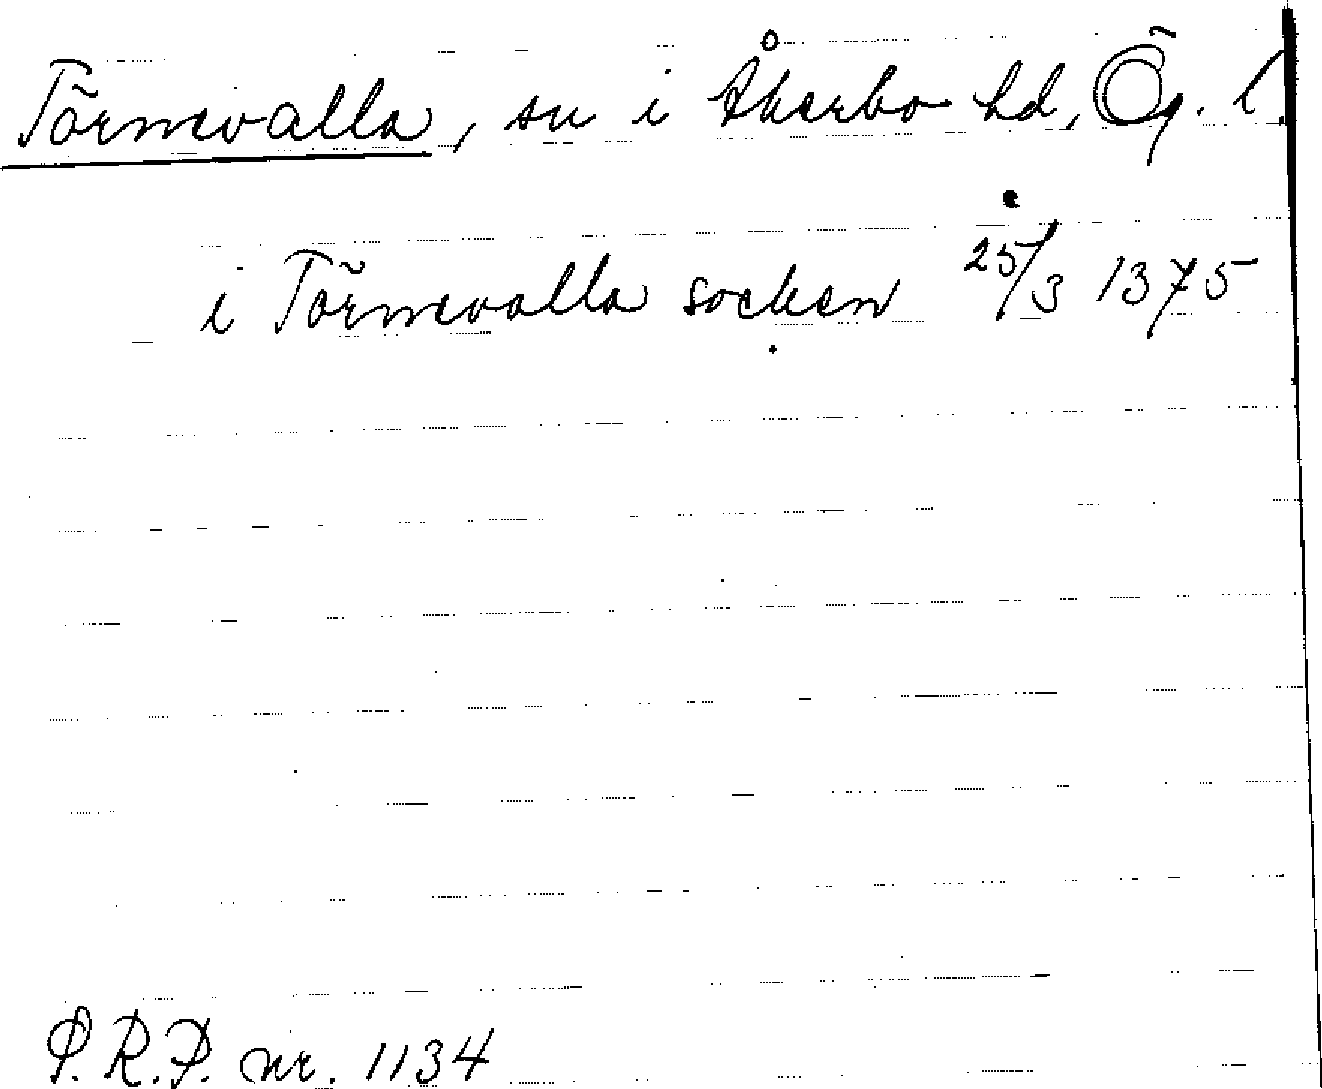 Törnevalla, sn i Åkerbo hd, Ög. l.
i Törnevalla socken 25/3 1375
P.R.P. nr. 1134